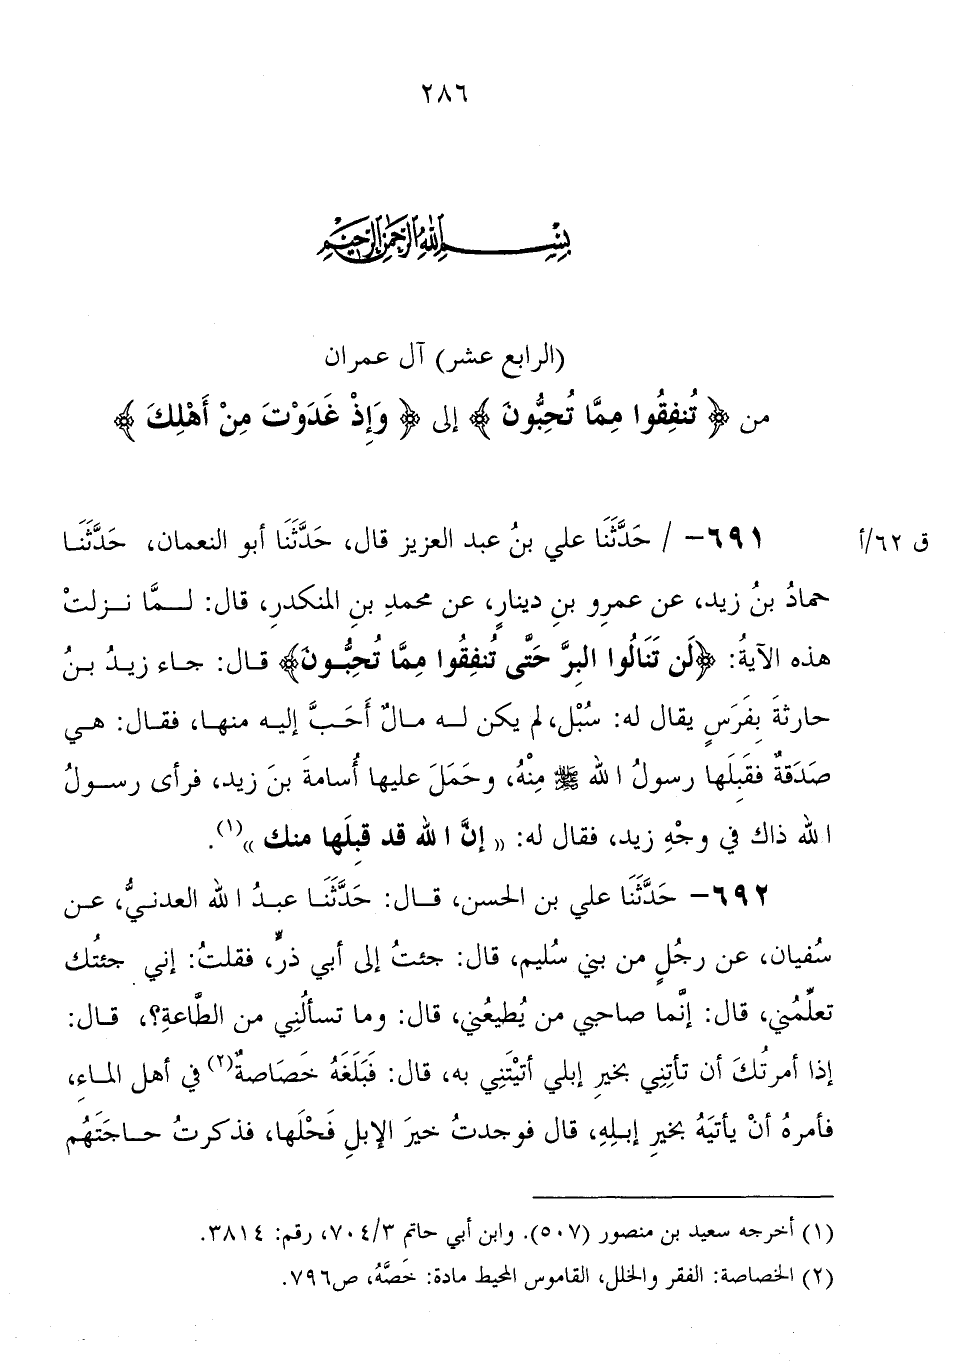 ٢٨٦
بسم الله الرحمن الرحيم
(الرابع عشر) آل عمران
من ﴿ تُنفِقُوا مِمَّا تُحِبُّونَ ﴾ إلى ﴿ وَإِذْ غَدَوْتَ مِنْ أَهْلِكَ ﴾
ق ٦٢/أ
٦٩١- / حَدَّثَنَا علي بنُ عبد العزيز قال، حَدَّثَنَا أبو النعمان، حَدَّثَنَا
حمادُ بنُ زيد، عن عمرِو بنِ دينارٍ، عن محمدِ بنِ المنكدرِ، قال: لـمَّا نـزلتْ
هذه الآيةُ: ﴿لَن تَنَالُوا البِرَّ حَتَّى تُنفِقُوا مِمَّا تُحِبُّونَ﴾ قال: جاء زيدُ بنُ
حارثةَ بِفَرَسٍ يقال له: سُبْل، لم يكن له مالٌ أَحَبَّ إليه منها، فقال: هي
صَدَقةٌ فقَبِلَها رسولُ الله ﷺ مِنْهُ، وحَمَلَ عليها أُسامةَ بنَ زيد، فرأى رسولُ
الله ذاك في وجْهِ زيد، فقال له: « إنَّ الله قد قبِلَها منك »(١).
٦٩٢- حَدَّثَنَا علي بن الحسن، قال: حَدَّثَنَا عبدُ الله العدنيُّ، عن
سُفيان، عن رجُلٍ من بني سُليم، قال: جئتُ إلى أبي ذرٍّ، فقلتُ: إني جئتك
تعلِّمُني، قال: إنَّما صاحبي من يُطيعُني، قال: وما تسألُنِي من الطَّاعةِ؟، قال:
إذا أمرتُكَ أن تأتِنِي بخيرِ إبلي أتيْتَنِي به، قال: فَبَلَغَهُ خَصَاصةٌ(٢) في أهل الماءِ،
فأمرهُ أنْ يأتيَهُ بخيرِ إبلِهِ، قال فوجدتُ خيرَ الإبلِ فَحْلَها، فذكرتُ حاجَتَهُم
(١) أخرجه سعيد بن منصور (٥٠٧). وابن أبي حاتم ٧٠٤/٣، رقم: ٣٨١٤.
(٢) الخصاصة: الفقر والخلل، القاموس المحيط مادة: خَصَّهُ، ص٧٩٦.